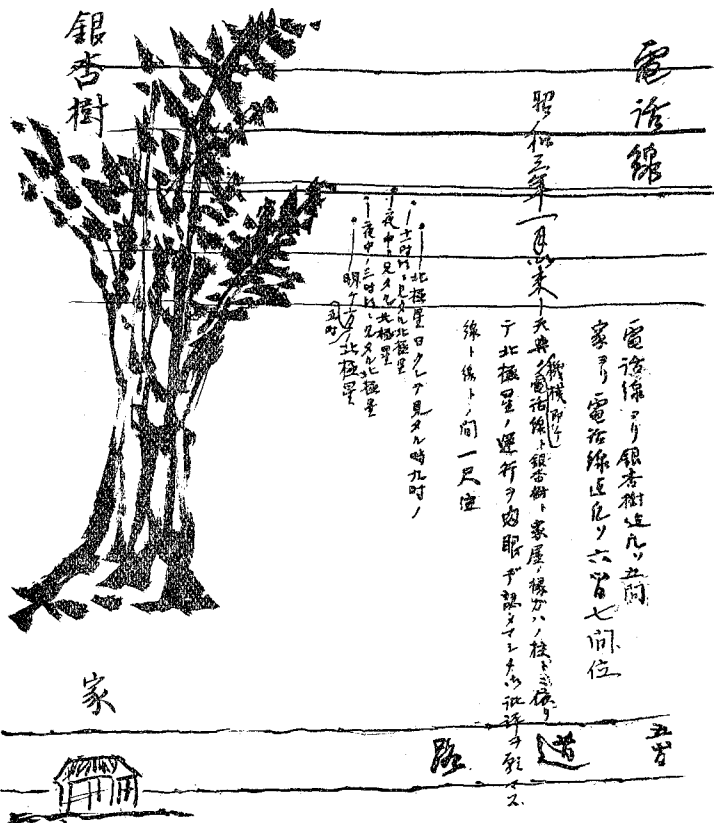 電話線
電話線ヨリ銀杏樹迄凡ソ五間
家ヨリ電話線迄凡ソ六間七間位
昭和三年一月以来天與ノ機械即チ電話線ト銀杏樹ト家屋ノ椽ガハノ柱トニ依リ
テ北極星ノ運行ヲ肉眼デ認メマシタ御批評ヲ願マス
線ト線トノ間一尺位
北極星ヨクシテ見タル時九時ノ
十一時ニ見タル北極星
夜中ニ見タル北極星
夜中ノ三時ニ見タル北極星
明ケ方ノ北極星
五時
銀杏樹
家
道路